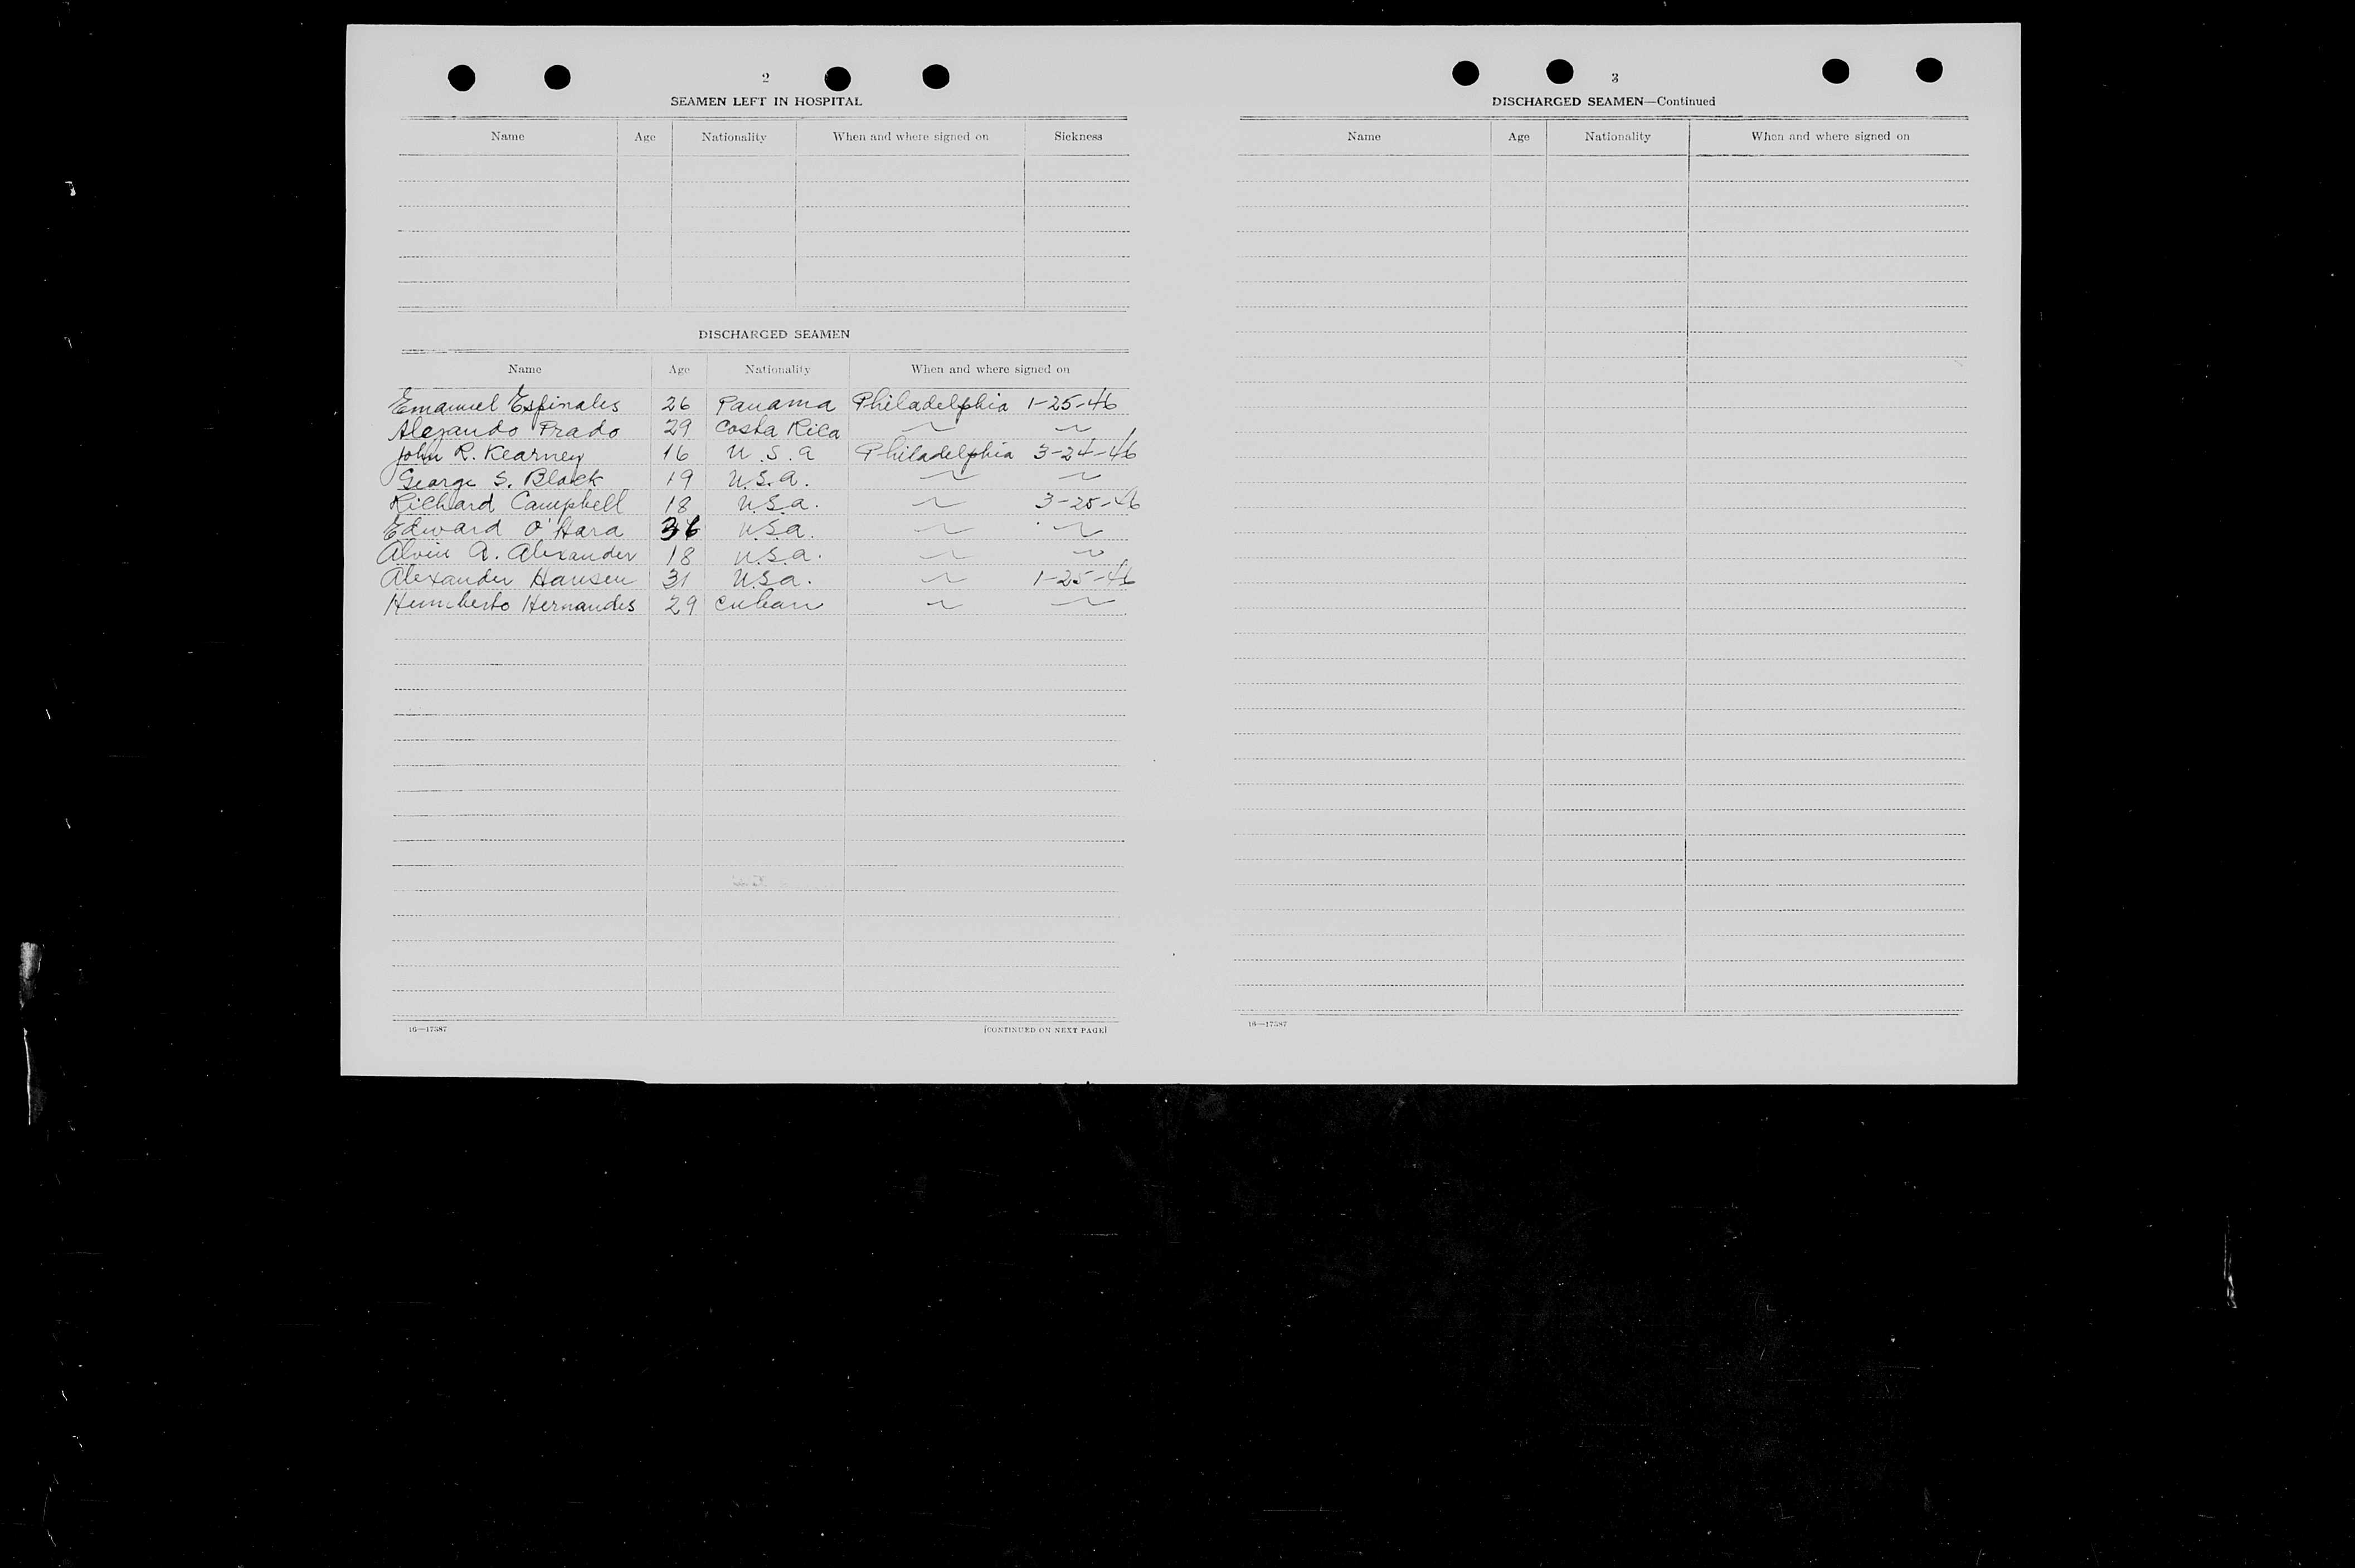 2
SEAMEN LEFT IN HOSPITAL
Name Age Nationality When and where signed on Sickness
DISCHARGED SEAMEN
Name Age Nationality When and where signed on
Emanuel Espinales 26 Panama Philadelphia 1-25-46
Alejando Prado 29 Costa Rica ~ ~
John R. Kearney 16 U.S.a Philadelphia 3-24-46
George S. Black 19 U.S.a. ~ ~
Richard Campbell 18 U.S.a. ~ 3-25-46
Edward O'Hara 36 U.S.a. ~ ~
Alvin A. Alexander 18 U.S.a. ~ ~
Alexander Hansen 31 U.S.a. ~ 1-25-46
Humberto Hernandes 29 Cuban ~ ~
16—17387
[CONTINUED ON NEXT PAGE]
3
DISCHARGED SEAMEN—Continued
Name Age Nationality When and where signed on
16—17387